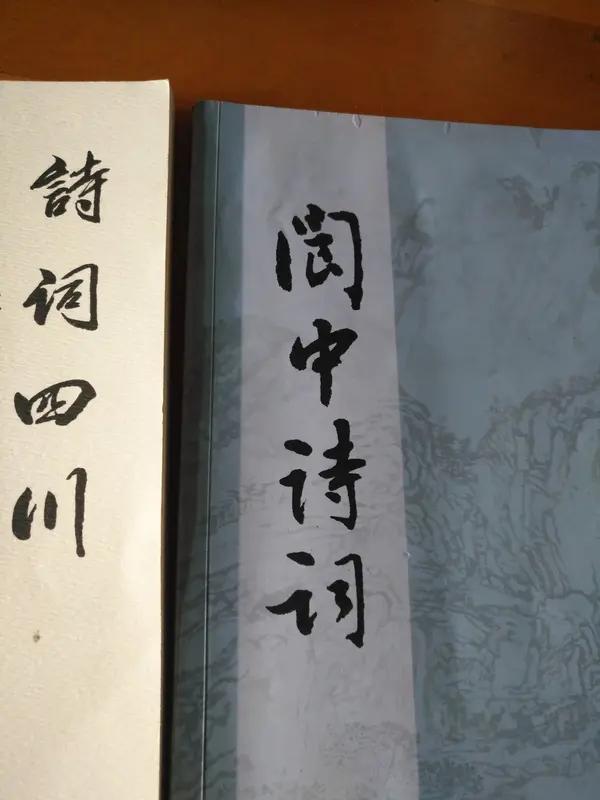 詩词四川
阆中诗词